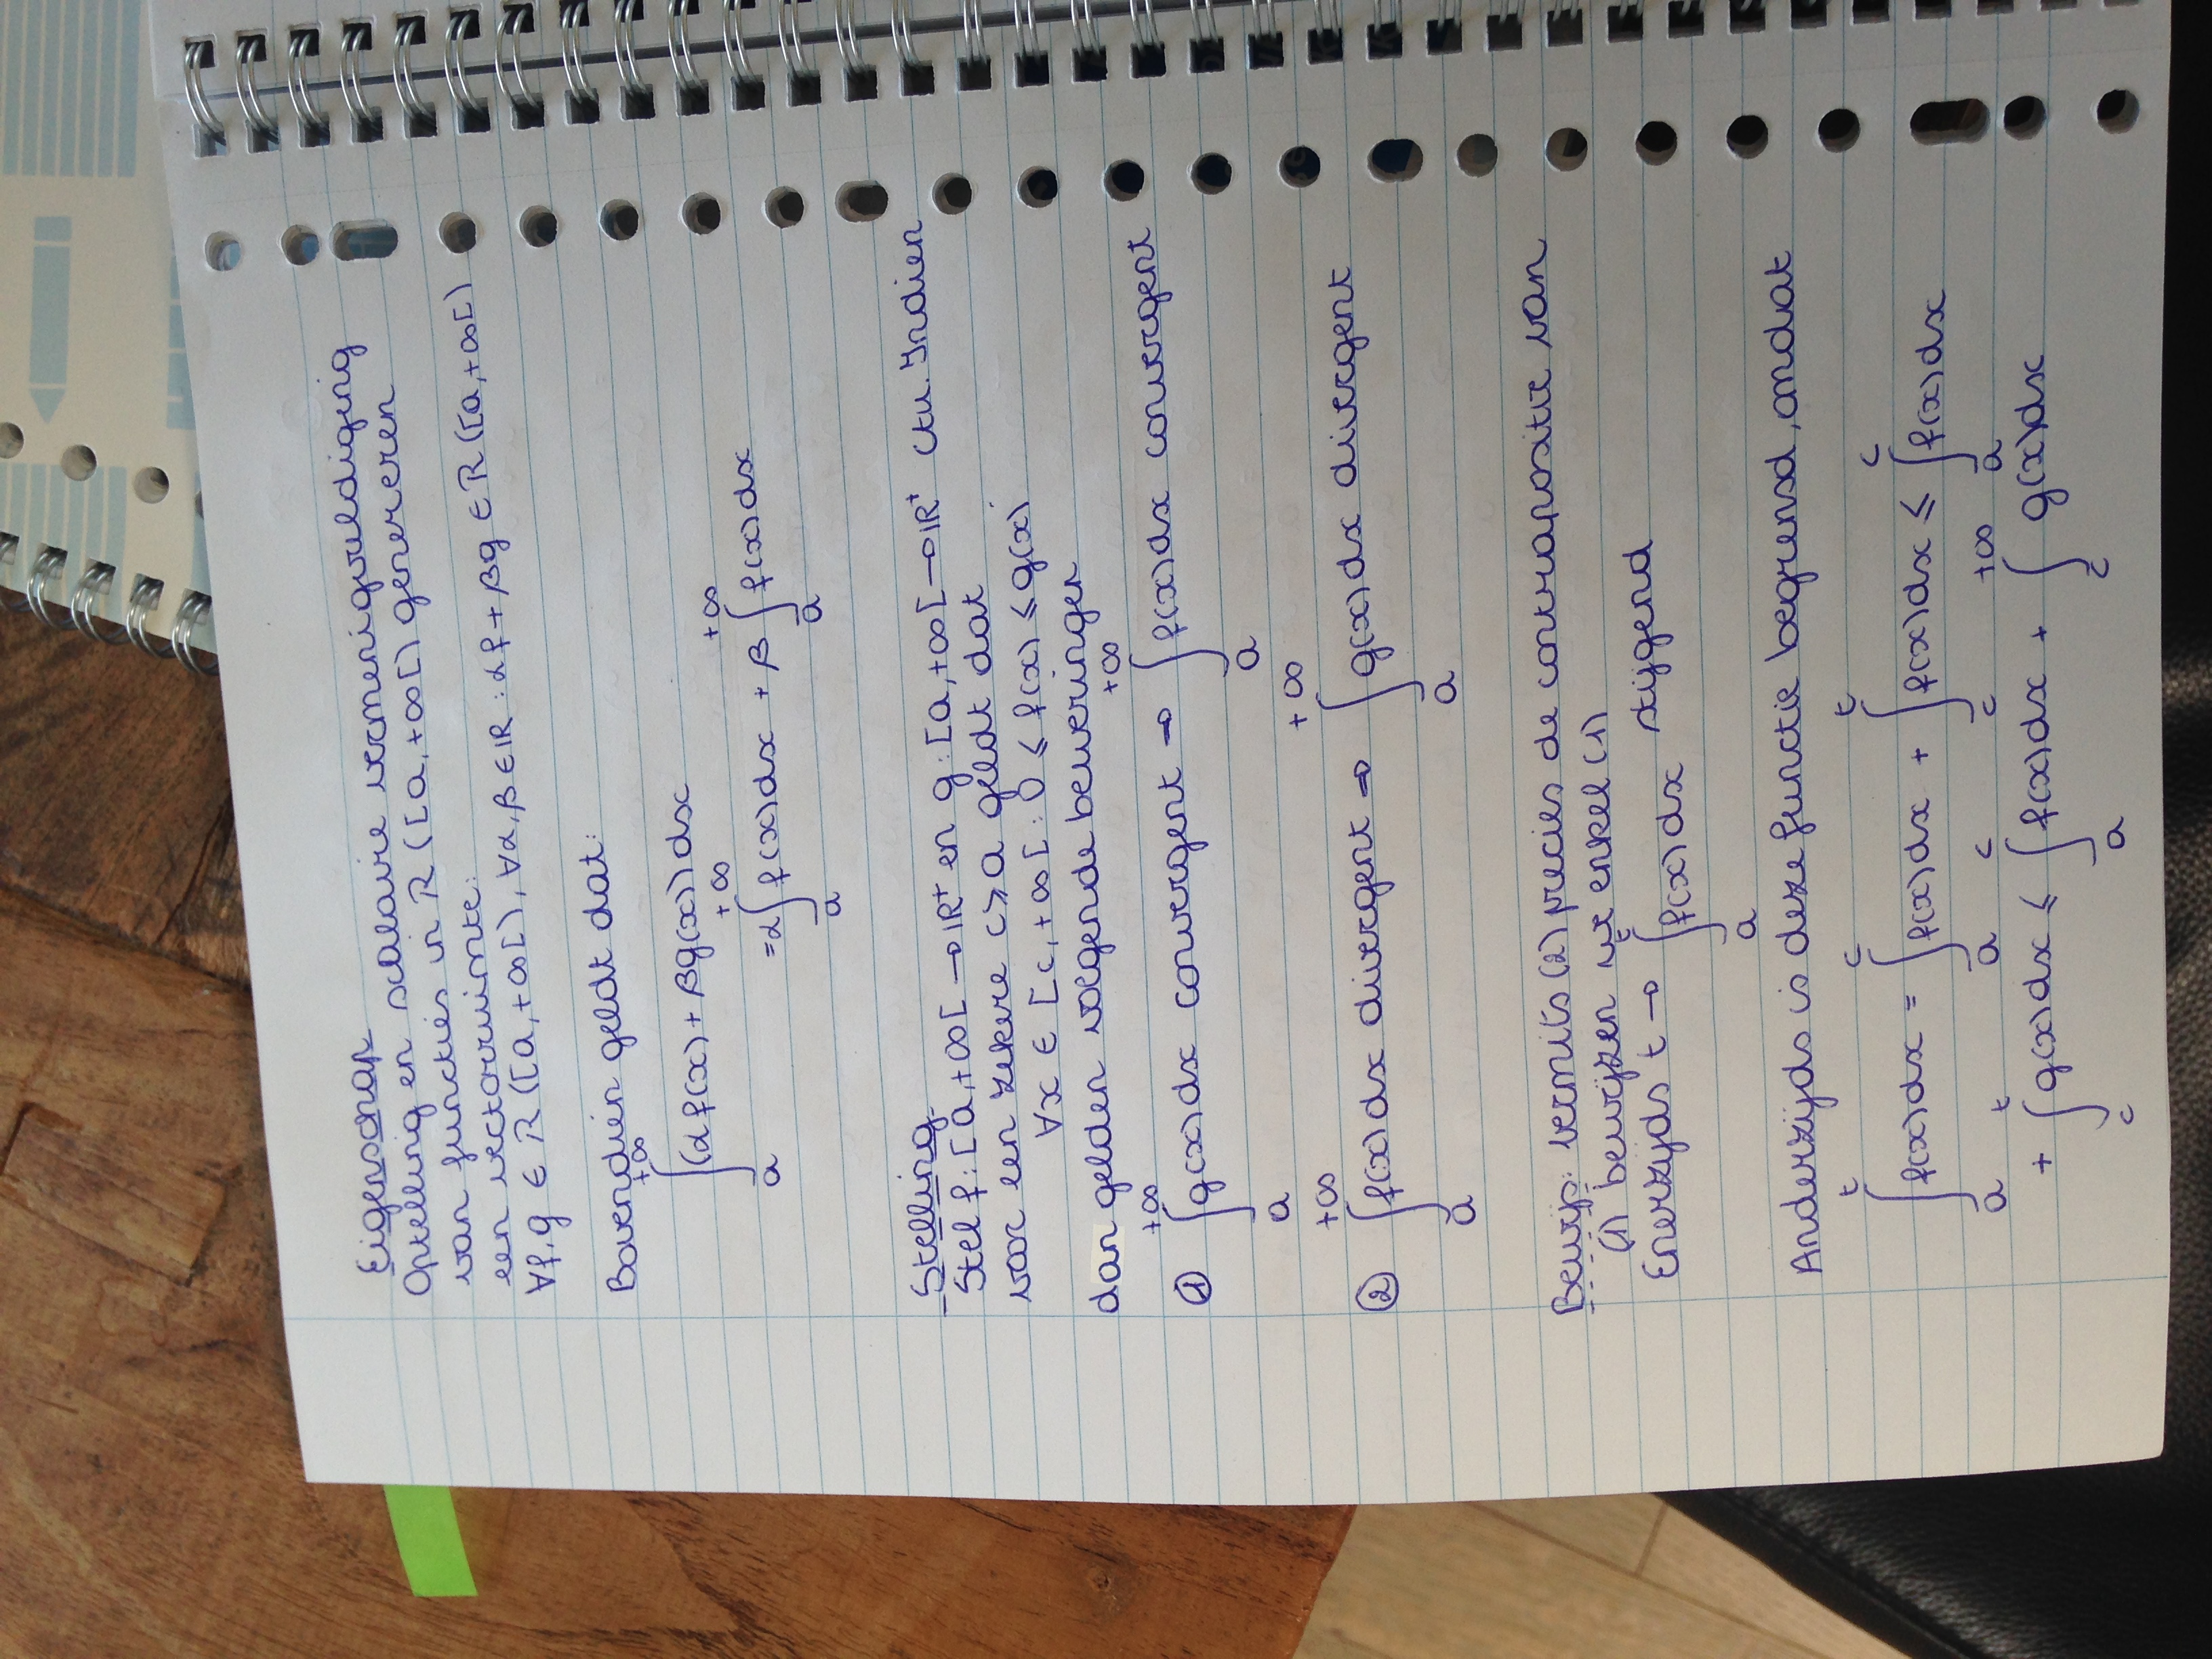 Eigenschap
Optelling en scalaire vermenigvuldiging
van functies in R ([a,+∞[) genereren
een vectorruimte:
∀f,g ∈ R ([a,+∞[), ∀α,β ∈ ℝ : αf + βg ∈ R ([a,+∞[)
Bovendien geldt dat:
∫_a^{+∞} (αf(x) + βg(x)) dx
= α ∫_a^{+∞} f(x)dx + β ∫_a^{+∞} f(x)dx
Stelling
Stel f: [a,+∞[ → ℝ⁺ en g: [a,+∞[ → ℝ⁺ ctu. Indien
voor een zekere c ⩾ a geldt dat
∀x ∈ [c,+∞[ : 0 ⩽ f(x) ⩽ g(x)
dan gelden volgende beweringen
① ∫_a^{+∞} g(x)dx convergent ⇒ ∫_a^{+∞} f(x)dx convergent
② ∫_a^{+∞} f(x)dx divergent ⇒ ∫_a^{+∞} g(x)dx divergent
Bewijs: vermits (2) precies de contrapositie van
(1) bewijzen we enkel (1)
Enerzijds t → ∫_a^t f(x)dx stijgend
Anderzijds is deze functie begrensd, omdat
∫_a^t f(x)dx = ∫_a^c f(x)dx + ∫_c^t f(x)dx ⩽ ∫_a^c f(x)dx
+ ∫_c^t g(x)dx ⩽ ∫_a^c f(x)dx + ∫_c^{+∞} g(x)dx